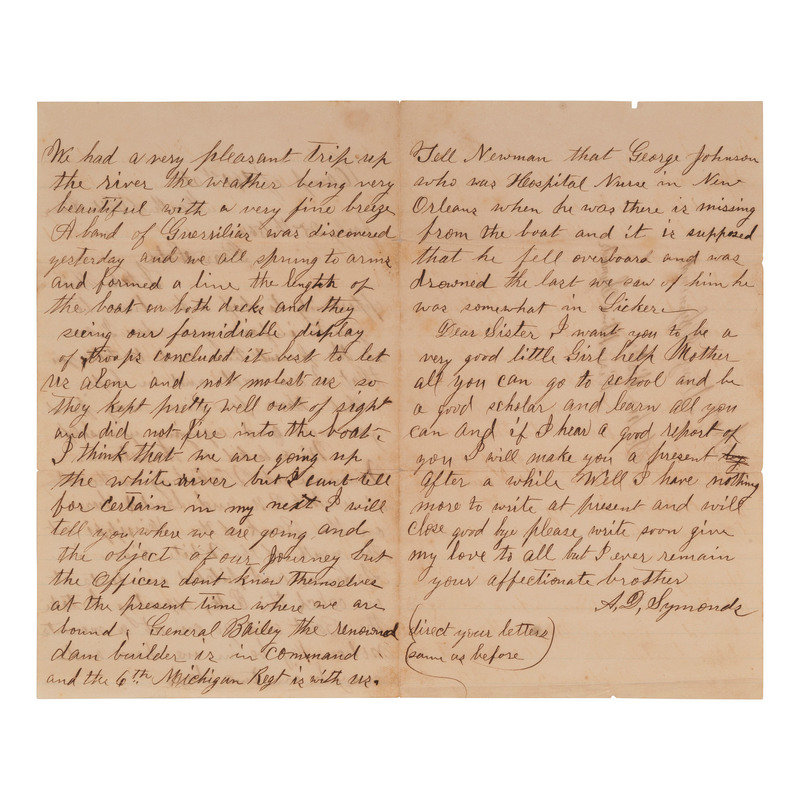 We had a very pleasant trip up
the river the weather being very
beautiful with a very fine breeze
A band of Guerriliar was discovered
yesterday and we all sprung to arms
and formed a line the length of
the boat on both decks and they
seeing our formidiable display
of troops concluded it best to let
us alone and not molest us so
they kept pretty well out of sight
and did not fire into the boat.
I think that we are going up
the white river but I cant tell
for certain in my next I will
tell you where we are going and
the object of our Journey but
the Officers dont know themselves
at the present time where we are
bound, General Bailey the renowned
dam builder is in command
and the 6th Michigan Regt is with us.
Tell Newman that George Johnson
who was Hospital Nurse in New
Orleans when he was there is missing
from the boat and it is supposed
that he fell overboard and was
drowned the last we saw of him he
was somewhat in Licker
Dear Sister I want you to be a
very good little Girl help Mother
all you can go to school and be
a good scholar and learn all you
can and if I hear a good report of
you I will make you a present
after a while Well I have nothing
more to write at present and will
close good bye please write soon give
my love to all but I ever remain
your affectionate brother
A. D, Symonds
(direct your letters
same as before)